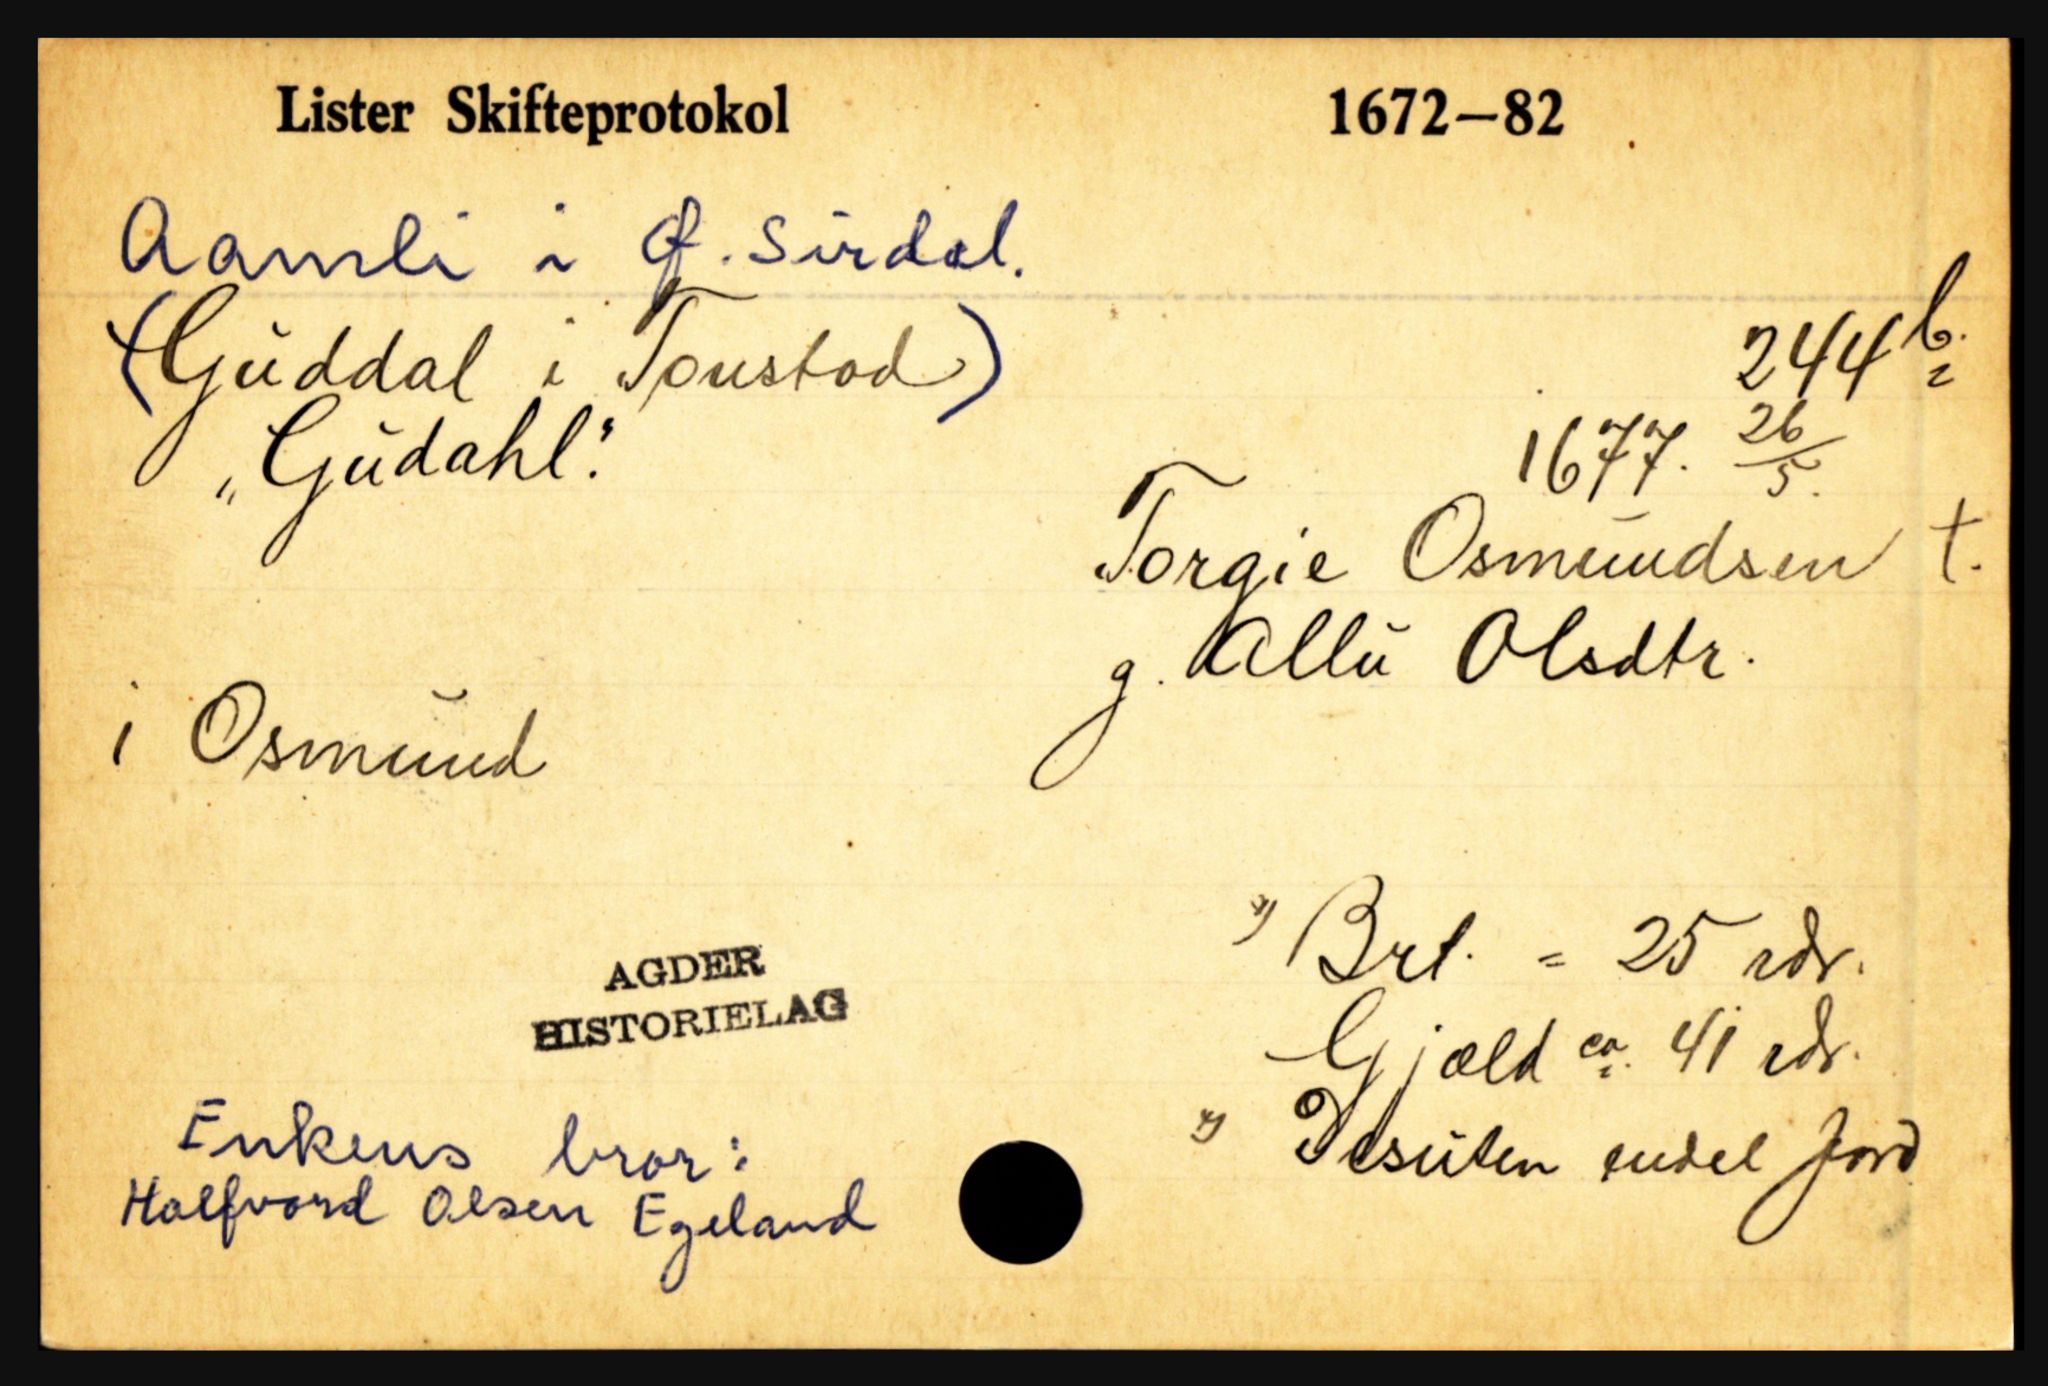 Lister Skifteprotokol 1672—82
Aamli i Ø. Sirdal.
(Guddal i Tonstad)
244 b.
"Gudahl".
1677. 26/5.
Torgie Osmundsen †.
g. Allu Olsdtr.
1 Osmund
x) Brt. = 25 rdr.
AGDER
HISTORIELAG
Gjæld ca. 41 rdr.
x) Desuten endel jord
Enkens bror:
Halfvord Olsen Egeland